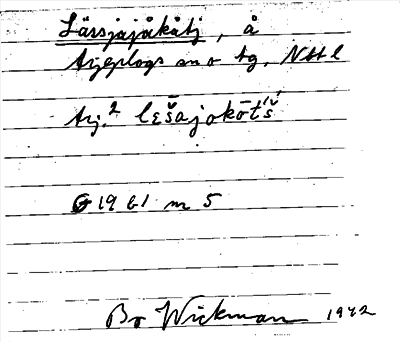 Lässjajåkåtj, å
Arjeplogs sn o tg. Nbtl
Arj.² lɛšajokōt́š́
G 19 61 m 5
Bo Wickman 1942